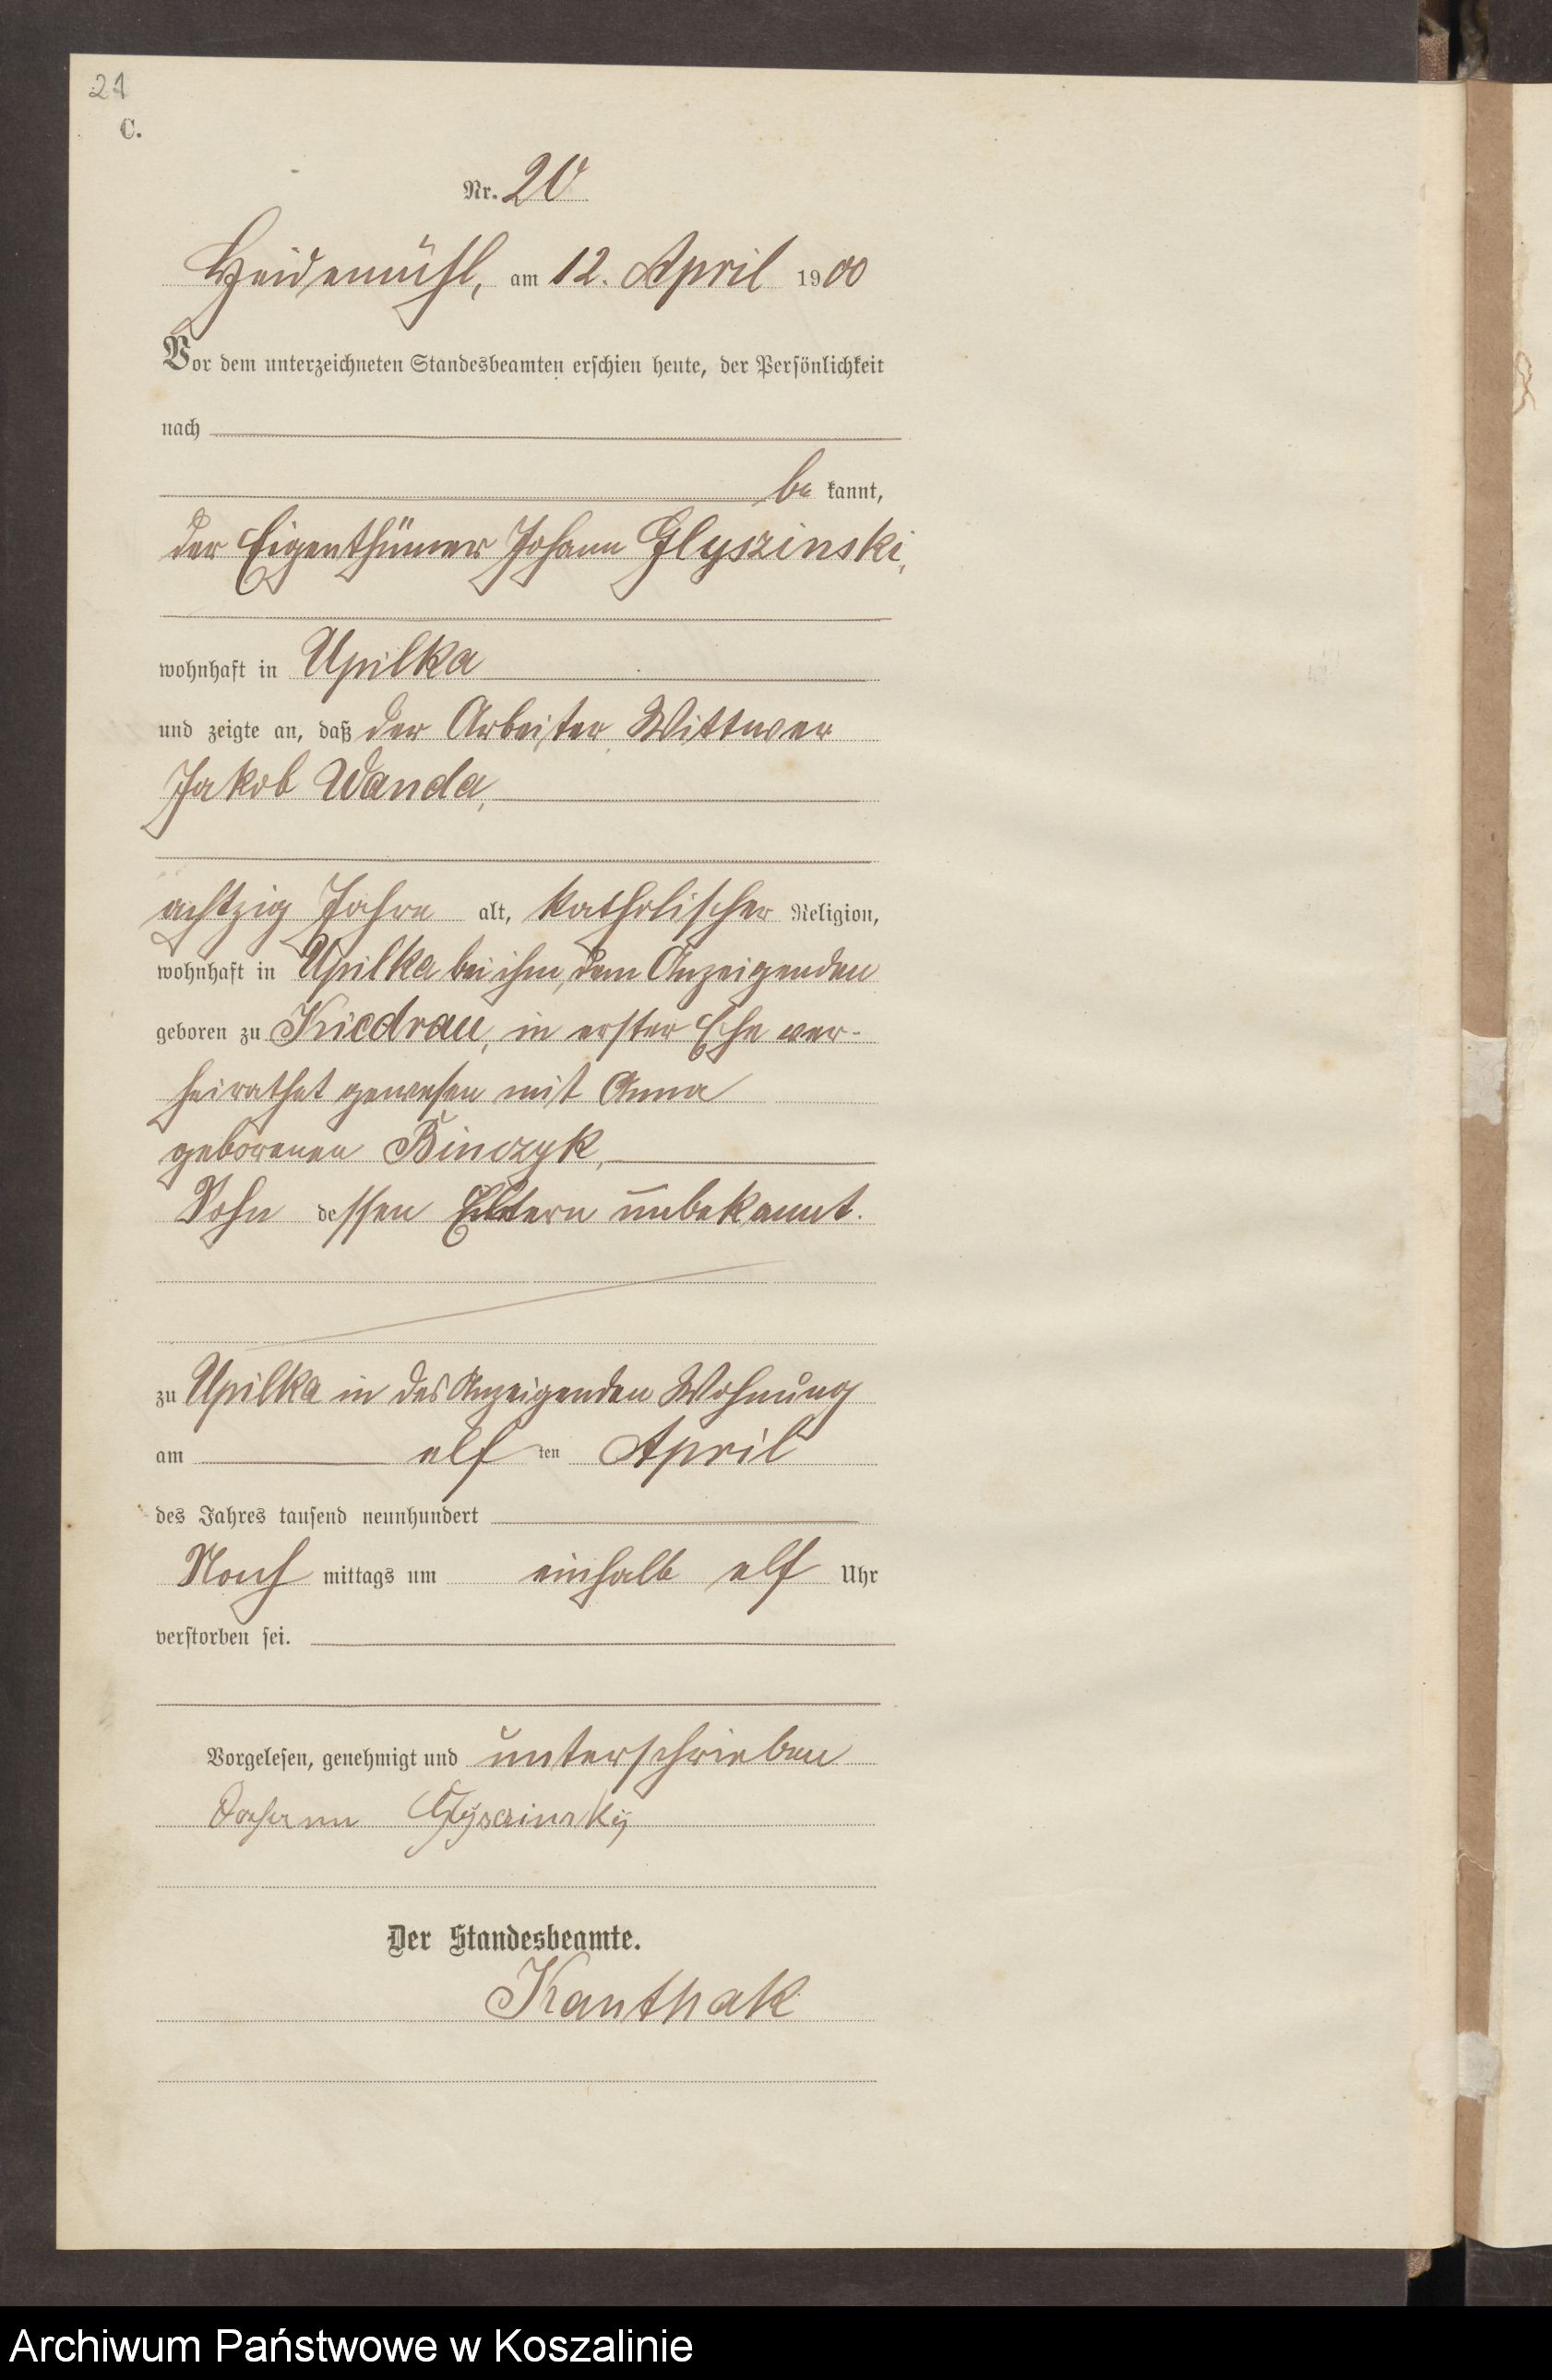 21
C.
Nr. 20
Heidemühl, am 12. April 1900
Vor dem unterzeichneten Standesbeamten erschien heute, der Persönlichkeit
nach
be kannt,
der Eigenthümer Johann Glyszinski,
wohnhaft in Upilka
und zeigte an, daß der Arbeiter Wittwer
Jakob Wanda,
achtzig Jahre alt, katholischer Religion,
wohnhaft in Upilka bei ihm, dem Anzeigenden
geboren zu Kiedrau, in erster Ehe ver-
heirathet gewesen mit Anna
geborenen Binczyk,
Sohn dessen Eltern unbekannt.
zu Upilka in des Anzeigenden Wohnung
am elf ten April
des Jahres tausend neunhundert
Nach mittags um einhalb elf Uhr
verstorben sei.
Vorgelesen, genehmigt und unterschrieben
Johann
Der Standesbeamte.
Kanthak
Archiwum Państwowe w Koszalinie